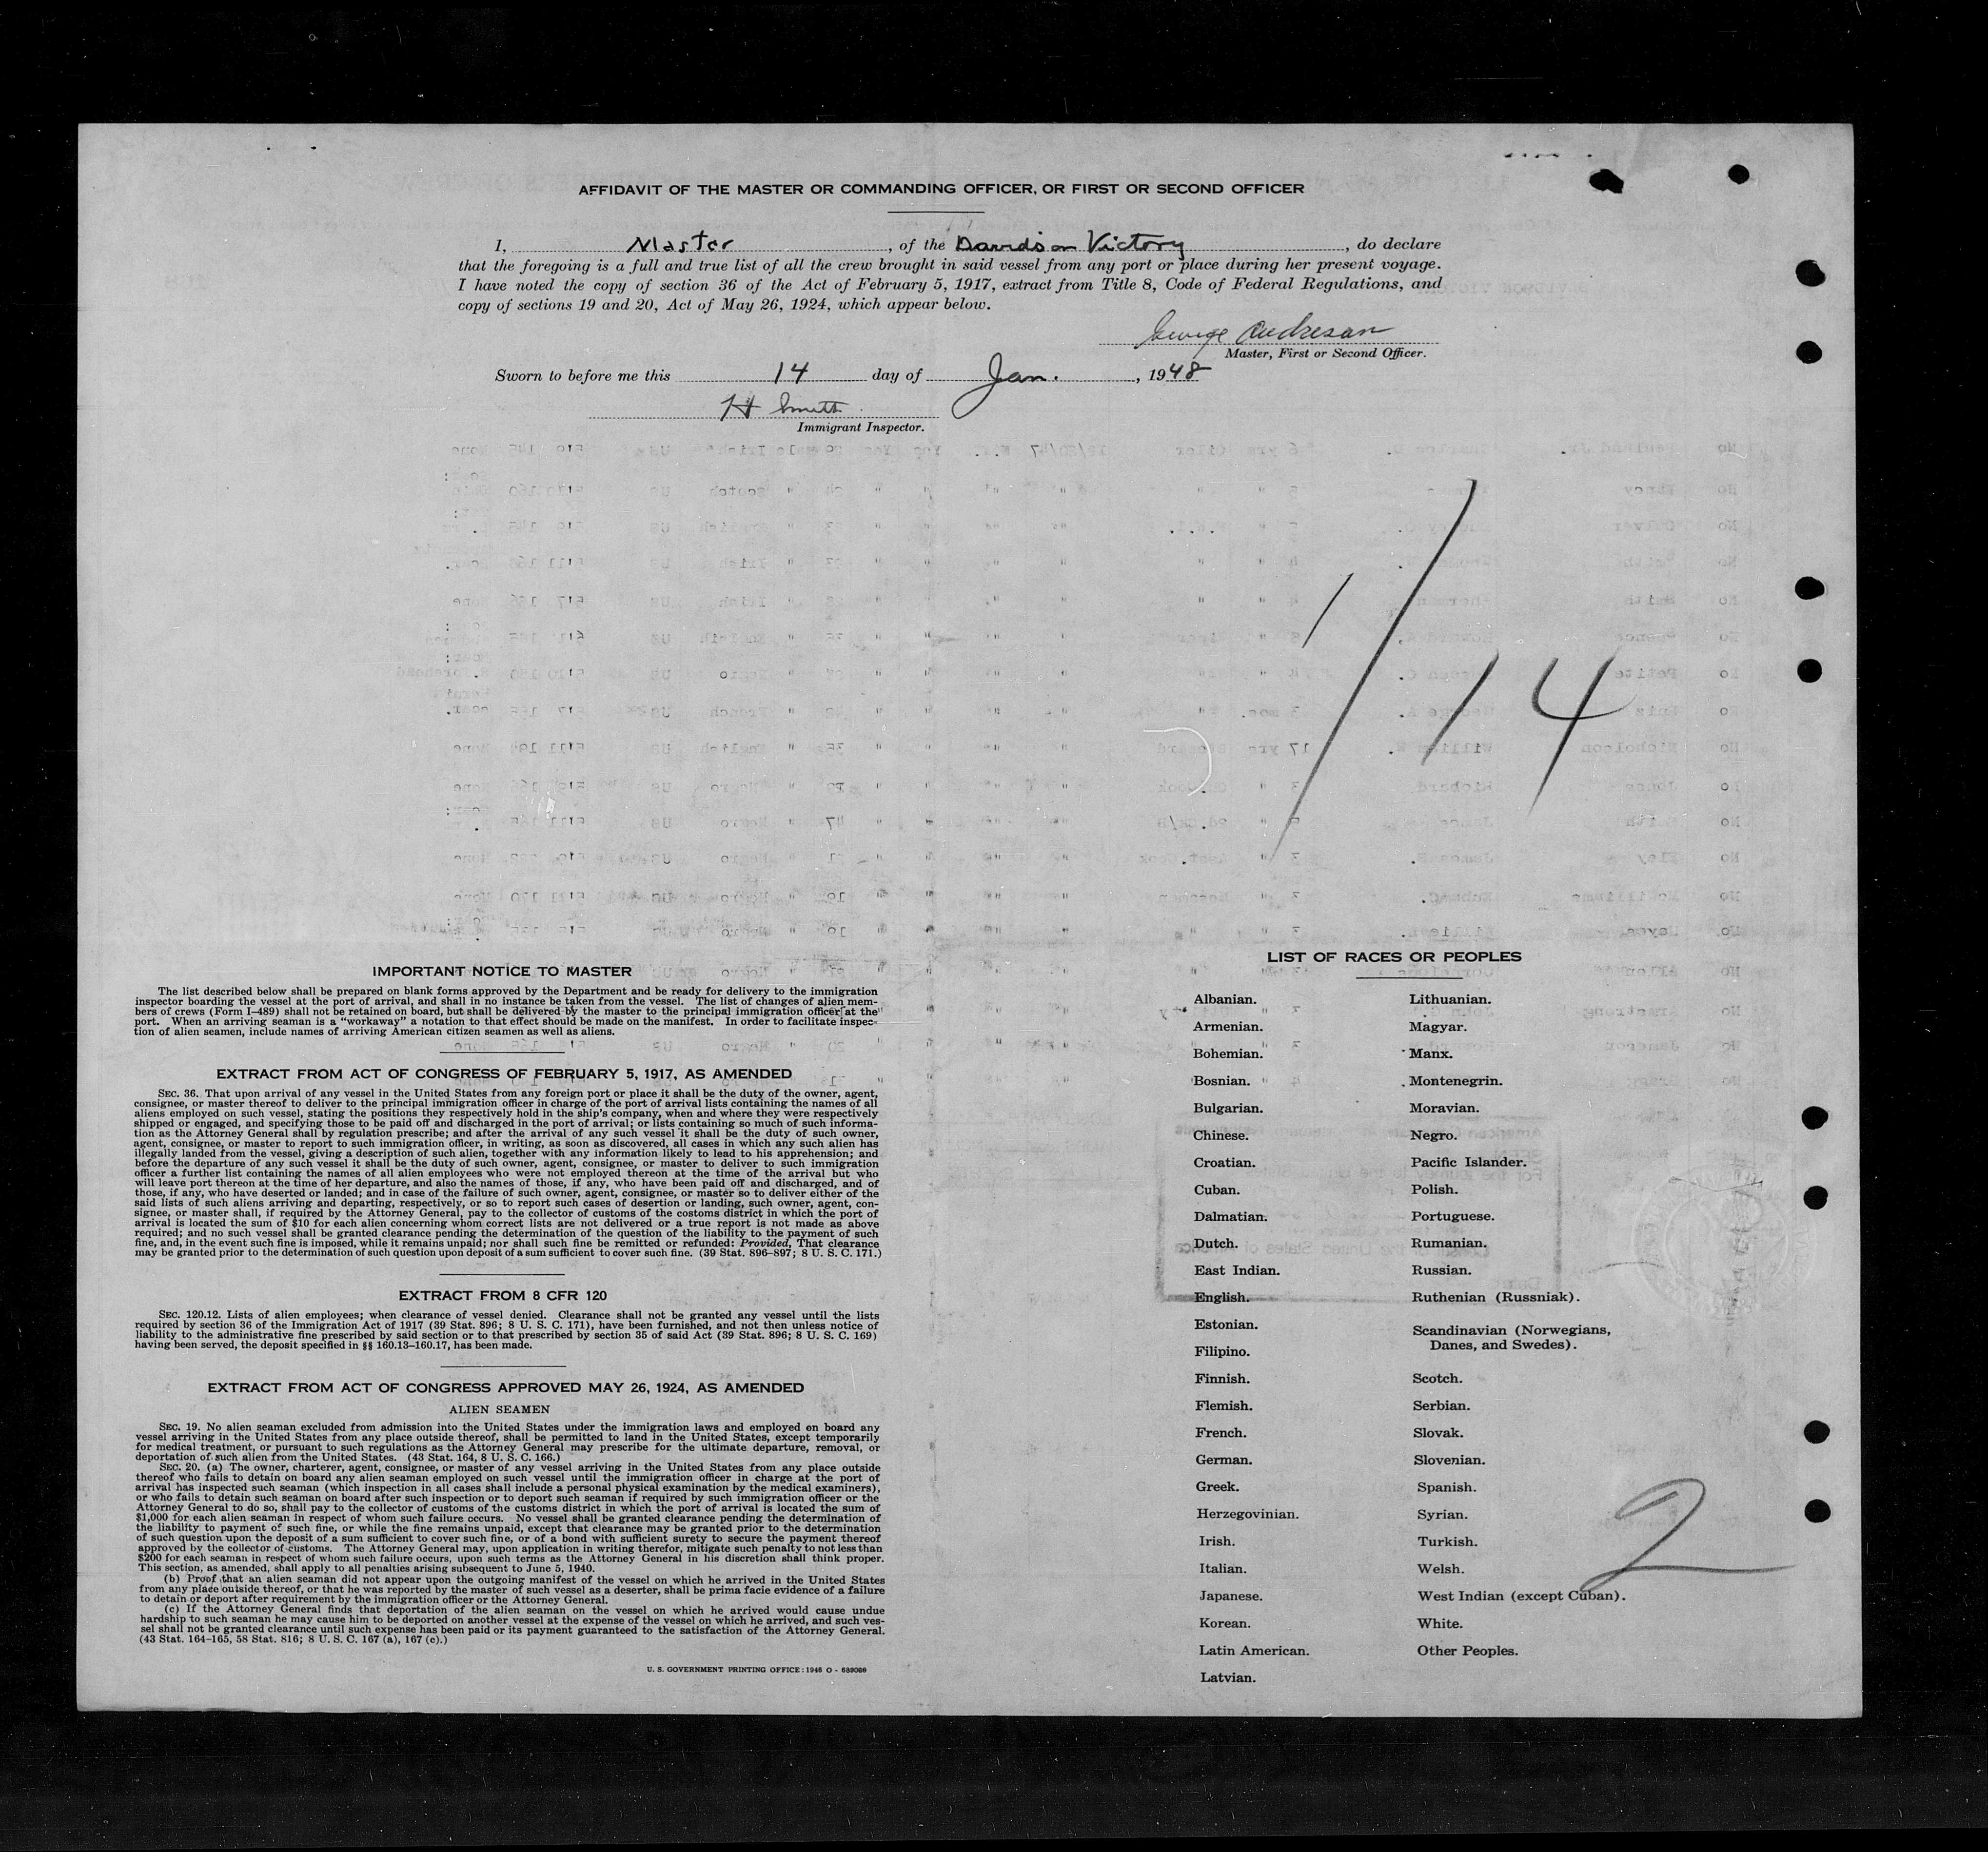 AFFIDAVIT OF THE MASTER OR COMMANDING OFFICER, OR FIRST OR SECOND OFFICER
I, Master, of the Davidson Victory, do declare
that the foregoing is a full and true list of all the crew brought in said vessel from any port or place during her present voyage.
I have noted the copy of section 36 of the Act of February 5, 1917, extract from Title 8, Code of Federal Regulations, and
copy of sections 19 and 20, Act of May 26, 1924, which appear below.
George Andresan
Master, First or Second Officer.
Sworn to before me this 14 day of Jan., 1948
H Smith
Immigrant Inspector.
1/14
IMPORTANT NOTICE TO MASTER
The list described below shall be prepared on blank forms approved by the Department and be ready for delivery to the immigration
inspector boarding the vessel at the port of arrival, and shall in no instance be taken from the vessel. The list of changes of alien mem-
bers of crews (Form I-489) shall not be retained on board, but shall be delivered by the master to the principal immigration officer at the
port. When an arriving seaman is a "workaway" a notation to that effect should be made on the manifest. In order to facilitate inspec-
tion of alien seamen, include names of arriving American citizen seamen as well as aliens.
EXTRACT FROM ACT OF CONGRESS OF FEBRUARY 5, 1917, AS AMENDED
SEC. 36. That upon arrival of any vessel in the United States from any foreign port or place it shall be the duty of the owner, agent,
consignee, or master thereof to deliver to the principal immigration officer in charge of the port of arrival lists containing the names of all
aliens employed on such vessel, stating the positions they respectively hold in the ship's company, when and where they were respectively
shipped or engaged, and specifying those to be paid off and discharged in the port of arrival; or lists containing so much of such informa-
tion as the Attorney General shall by regulation prescribe; and after the arrival of any such vessel it shall be the duty of such owner,
agent, consignee, or master to report to such immigration officer, in writing, as soon as discovered, all cases in which any such alien has
illegally landed from the vessel, giving a description of such alien, together with any information likely to lead to his apprehension; and
before the departure of any such vessel it shall be the duty of such owner, agent, consignee, or master to deliver to such immigration
officer a further list containing the names of all alien employees who were not employed thereon at the time of the arrival but who
will leave port thereon at the time of her departure, and also the names of those, if any, who have been paid off and discharged, and of
those, if any, who have deserted or landed; and in case of the failure of such owner, agent, consignee, or master so to deliver either of the
said lists of such aliens arriving and departing, respectively, or so to report such cases of desertion or landing, such owner, agent, con-
signee, or master shall, if required by the Attorney General, pay to the collector of customs of the customs district in which the port of
arrival is located the sum of $10 for each alien concerning whom correct lists are not delivered or a true report is not made as above
required; and no such vessel shall be granted clearance pending the determination of the question of the liability to the payment of such
fine, and, in the event such fine is imposed, while it remains unpaid; nor shall such fine be remitted or refunded: Provided, That clearance
may be granted prior to the determination of such question upon deposit of a sum sufficient to cover such fine. (39 Stat. 896-897; 8 U. S. C. 171.)
EXTRACT FROM 8 CFR 120
SEC. 120.12. Lists of alien employees; when clearance of vessel denied. Clearance shall not be granted any vessel until the lists
required by section 36 of the Immigration Act of 1917 (39 Stat. 896; 8 U. S. C. 171), have been furnished, and not then unless notice of
liability to the administrative fine prescribed by said section or to that prescribed by section 35 of said Act (39 Stat. 896; 8 U. S. C. 169)
having been served, the deposit specified in §§ 160.13-160.17, has been made.
EXTRACT FROM ACT OF CONGRESS APPROVED MAY 26, 1924, AS AMENDED
ALIEN SEAMEN
SEC. 19. No alien seaman excluded from admission into the United States under the immigration laws and employed on board any
vessel arriving in the United States from any place outside thereof, shall be permitted to land in the United States, except temporarily
for medical treatment, or pursuant to such regulations as the Attorney General may prescribe for the ultimate departure, removal, or
deportation of such alien from the United States. (43 Stat. 164, 8 U. S. C. 166.)
SEC. 20. (a) The owner, charterer, agent, consignee, or master of any vessel arriving in the United States from any place outside
thereof who fails to detain on board any alien seaman employed on such vessel until the immigration officer in charge at the port of
arrival has inspected such seaman (which inspection in all cases shall include a personal physical examination by the medical examiners),
or who fails to detain such seaman on board after such inspection or to deport such seaman if required by such immigration officer or the
Attorney General to do so, shall pay to the collector of customs of the customs district in which the port of arrival is located the sum of
$1,000 for each alien seaman in respect of whom such failure occurs. No vessel shall be granted clearance pending the determination of
the liability to payment of such fine, or while the fine remains unpaid, except that clearance may be granted prior to the determination
of such question upon the deposit of a sum sufficient to cover such fine, or of a bond with sufficient surety to secure the payment thereof
approved by the collector of customs. The Attorney General may, upon application in writing therefor, mitigate such penalty to not less than
$200 for each seaman in respect of whom such failure occurs, upon such terms as the Attorney General in his discretion shall think proper.
This section, as amended, shall apply to all penalties arising subsequent to June 5, 1940.
(b) Proof that an alien seaman did not appear upon the outgoing manifest of the vessel on which he arrived in the United States
from any place outside thereof, or that he was reported by the master of such vessel as a deserter, shall be prima facie evidence of a failure
to detain or deport after requirement by the immigration officer or the Attorney General.
(c) If the Attorney General finds that deportation of the alien seaman on the vessel on which he arrived would cause undue
hardship to such seaman he may cause him to be deported on another vessel at the expense of the vessel on which he arrived, and such ves-
sel shall not be granted clearance until such expense has been paid or its payment guaranteed to the satisfaction of the Attorney General.
(43 Stat. 164-165, 58 Stat. 816; 8 U. S. C. 167 (a), 167 (c).)
U. S. GOVERNMENT PRINTING OFFICE : 1946 O - 689069
LIST OF RACES OR PEOPLES
Albanian.
Armenian.
Bohemian.
Bosnian.
Bulgarian.
Chinese.
Croatian.
Cuban.
Dalmatian.
Dutch.
East Indian.
English.
Estonian.
Filipino.
Finnish.
Flemish.
French.
German.
Greek.
Herzegovinian.
Irish.
Italian.
Japanese.
Korean.
Latin American.
Latvian.
Lithuanian.
Magyar.
Manx.
Montenegrin.
Moravian.
Negro.
Pacific Islander.
Polish.
Portuguese.
Rumanian.
Russian.
Ruthenian (Russniak).
Scandinavian (Norwegians,
Danes, and Swedes).
Scotch.
Serbian.
Slovak.
Slovenian.
Spanish.
Syrian.
Turkish.
Welsh.
West Indian (except Cuban).
White.
Other Peoples.
2